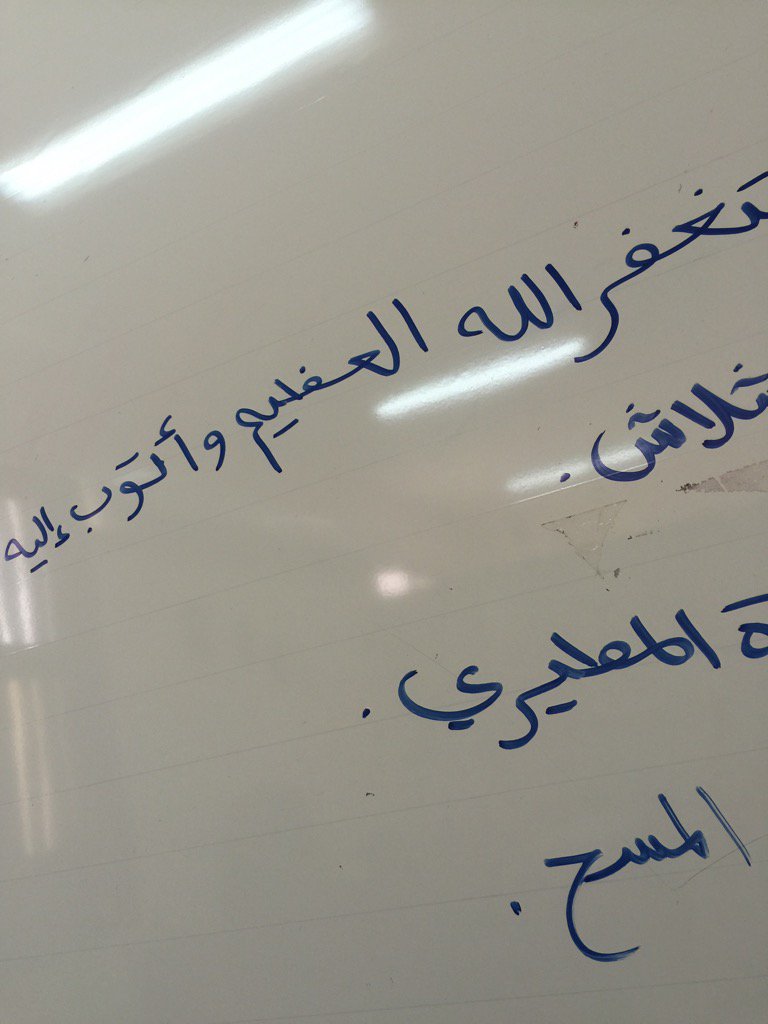 تغفر الله العظيم وأتوب إليه
المطيري.
المسح.